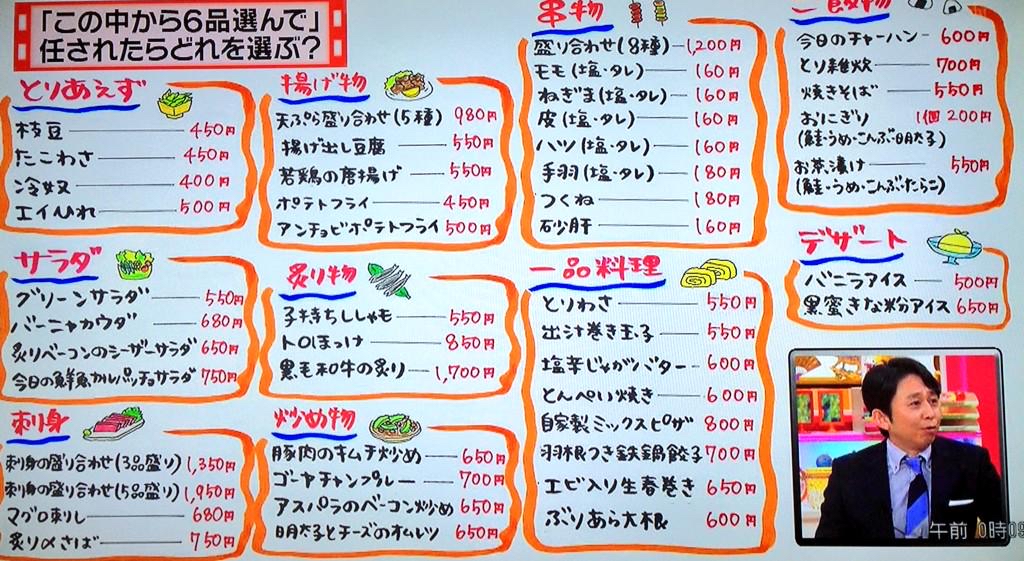 「この中から6品選んで」
任されたらどれを選ぶ?
とりあえず
枝豆 450円
たこわさ 450円
冷奴 400円
エイひれ 500円
サラダ
グリーンサラダ 550円
バーニャカウダ 680円
炙りベーコンのシーザーサラダ 650円
今日の鮮魚カルパッチョサラダ 750円
刺身
刺身の盛り合わせ(3品盛り) 1,350円
刺身の盛り合わせ(5品盛り) 1,950円
マグロ刺し 680円
炙り〆さば 750円
揚げ物
天ぷら盛り合わせ(5種) 980円
揚げ出し豆腐 550円
若鶏の唐揚げ 550円
ポテトフライ 450円
アンチョビポテトフライ 500円
炙り物
子持ちししゃも 550円
トロほっけ 850円
黒毛和牛の炙り 1,700円
炒め物
豚肉のキムチ炒め 650円
ゴーヤチャンプルー 700円
アスパラのベーコン炒め 650円
明太子とチーズのオムレツ 650円
串物
盛り合わせ(8種) 1,200円
モモ(塩・タレ) 160円
ねぎま(塩・タレ) 160円
皮(塩・タレ) 160円
ハツ(塩・タレ) 160円
手羽(塩・タレ) 180円
つくね 180円
砂肝 160円
一品料理
とりわさ 550円
出汁巻き玉子 550円
塩辛じゃがバター 600円
とんぺい焼き 600円
自家製ミックスピザ 800円
羽根つき鉄鍋餃子 700円
エビ入り生春巻き 650円
ぶりあら大根 600円
ご飯物
今日のチャーハン 600円
とり雑炊 700円
焼きそば 550円
おにぎり 1個 200円
(鮭・うめ・こんぶ・明太子)
お茶漬け 550円
(鮭・うめ・こんぶ・たらこ)
デザート
バニラアイス 500円
黒蜜きな粉アイス 650円
午前 0時09